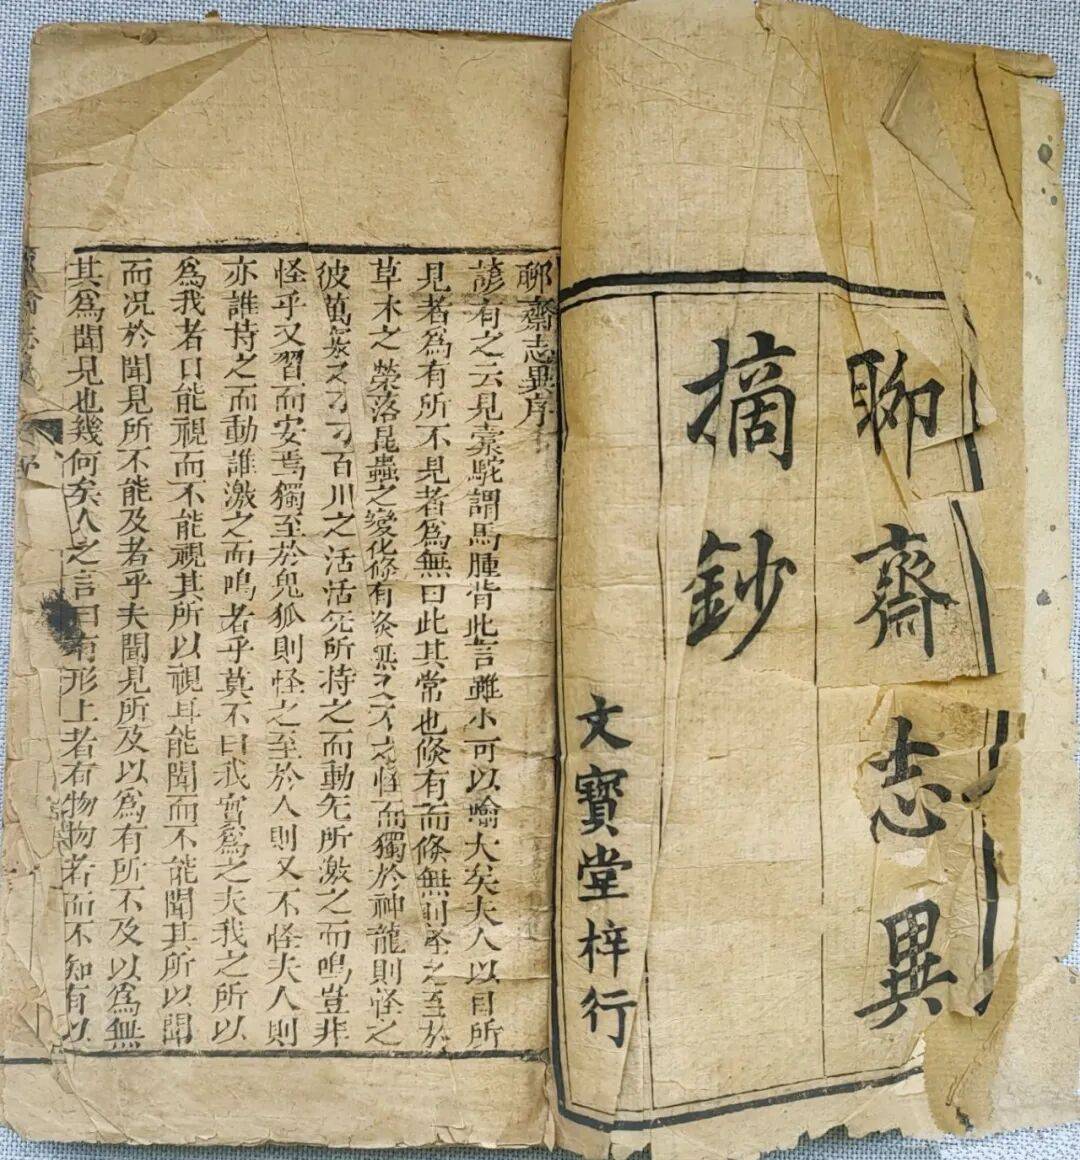 聊齋志異
摘鈔
文寶堂梓行
聊齋志異序
諺有之云見橐駝謂馬腫背此言雖小可以喻大矣夫人以目所
見者爲有所不見者爲無曰此其常也倐有而倐無則怪之至於
草木之榮落昆蟲之變化倐有倐無又不之怪而獨於神龍則怪之
彼萬竅之刁刁百川之活活无所持之而動无所激之而鳴豈非
怪乎又習而安焉獨至於鬼狐則怪之至於人則又不怪夫人則
亦誰持之而動誰激之而鳴者乎莫不曰我實爲之夫我之所以
爲我者口能視而不能視其所以視耳能聞而不能聞其所以聞
而况於聞見所不能及者乎夫聞見所及以爲有所不及以爲無
其爲聞見也幾何矣人之言曰有形上者有物物者而不知有以